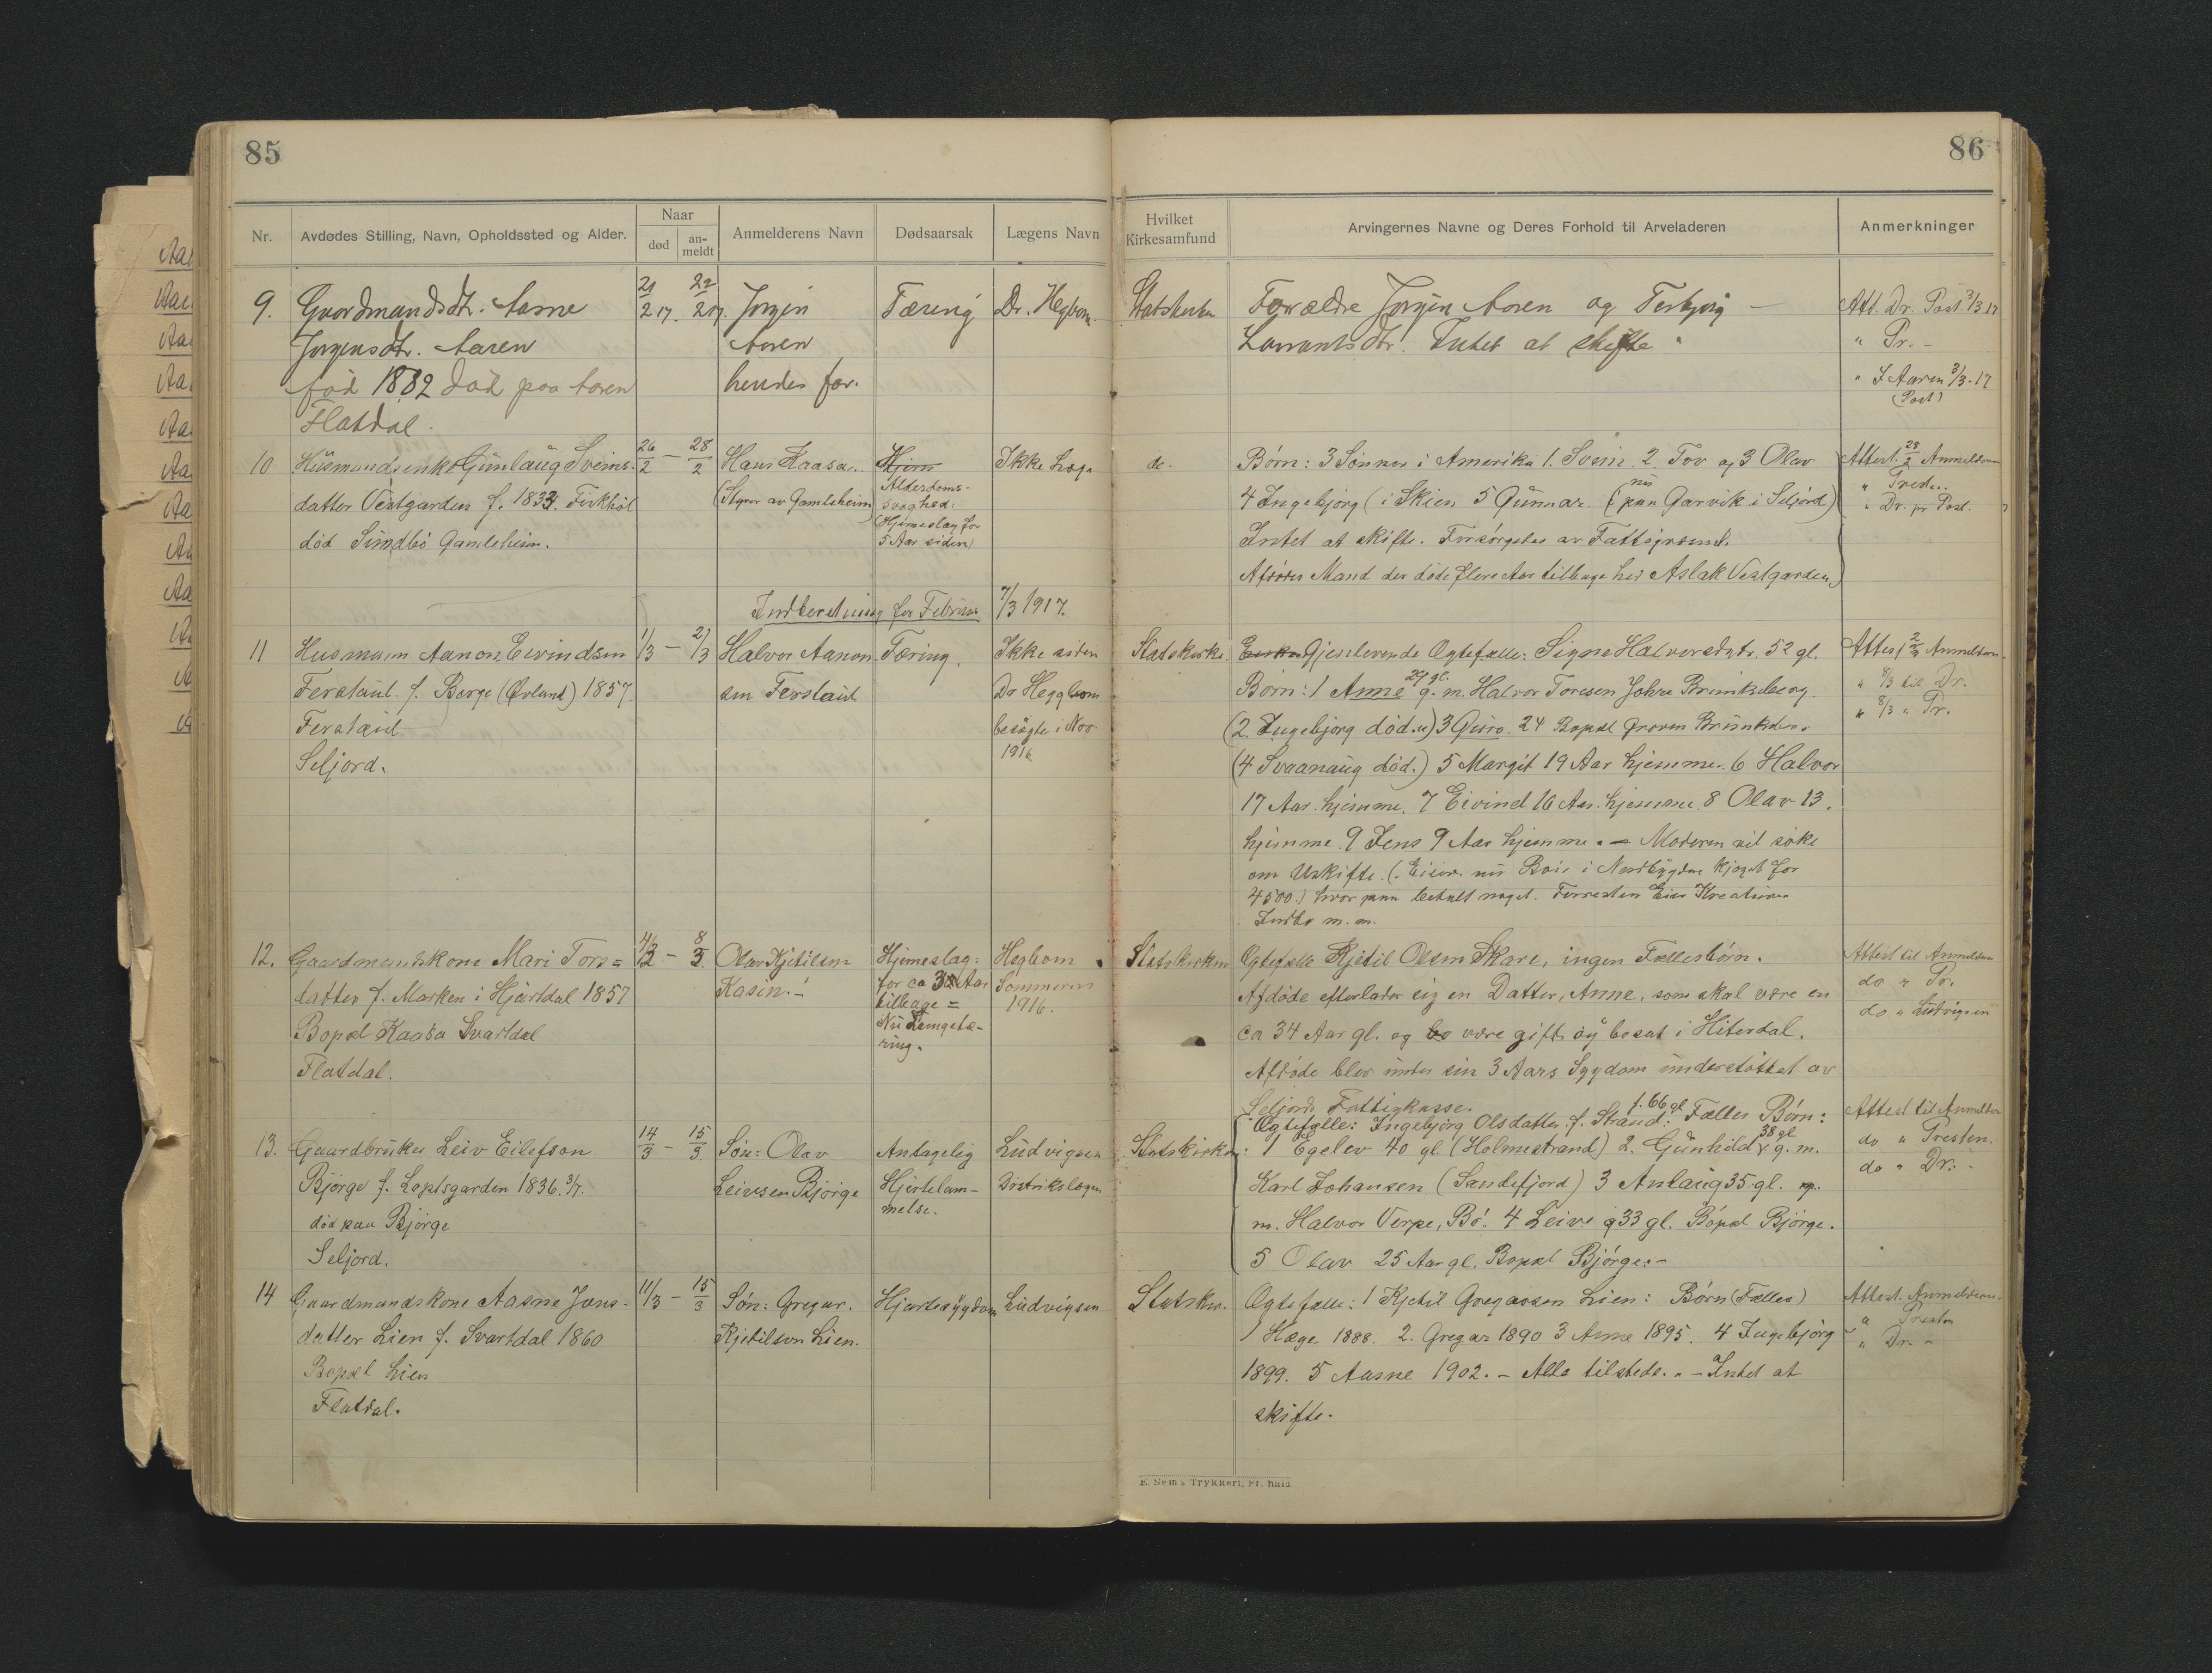 85
86
Nr.
Avdødes Stilling, Navn, Opholdssted og Alder.
Naar
død
an-
meldt
Anmelderens Navn
Dødsaarsak
Lægens Navn
Hvilket
Kirkesamfund
Arvingernes Navne og Deres Forhold til Arveladeren
Anmerkninger
9. Gaardmandsdtr. Aasne
Jørgensdtr. Aasen
født 1882 død paa Aasen
Flatdal.
21/2 17. 22/2 17.
Jørgen
Aasen
hendes far.
Tæring
Dr. Hegbom.
Statskirken
Forældre Jørgen Aasen og Torbjørg
Intet at skifte
Att. Dr. Post 3/3 17
" Pr. -
" J Aasen 3/3. 17
(Post)
10 Husmandsenke Gunlaug Sveins-
datter Vestgarden f. 1833.
død Sundbö Gamleheim.
26/2 - 28/2
Hans Kaasa.
(Styrer av Gamleheim)
Hjern
Alderdoms-
svaghed:
(Hjerneslag for
5 Aar siden)
Ikke Læge
do.
Børn: 3 Sønner i Amerika 1. Svein 2. Tov og 3 Olav
4 Ingebjörg (i Skien 5 Gunnar (nu paa Garvik i Seljord)
Intet at skifte. Forsörgedes av Fattigvæsnet.
Afdødes Mand der døde flere Aar tilbage hed Aslak Vestgarden)
Attest. 28/2 Anmelderen
" Presten.
" Dr. pr Post.
Indberetning for Februar 7/3 1917.
11 Husmann Aanon Eivindsen
Ferstaul. f. Berge (Ørland) 1857.
Ferstaul
Seljord.
1/3 - 2/3
Halvor Aanon-
sen Ferstaul
Tæring.
Ikke siden
Dr Heggbom
besøgte i Nov
1916
Statskirke.
Gjenlevende Ægtefælle: Signe Halvorsdtr. 52 gl.
Børn: 1 Anne 29 gl. g. m. Halvor Toresen Johre Brunkeberg.
(2. Ingebjørg död.) 3 Guro. 24 Bopæl Groven Brunkeberg.
(4 Svaanaug död.) 5 Margit 19 Aar hjemme. 6 Halvor
17 Aar hjemme. 7 Eivind 16 Aar hjemme 8 Olav 13.
hjemme. 9 Jens 9 Aar hjemme. - Moderen vil söke
om Uskifte. (Eien. nu i Nordbygden kjøpt for
4500.) hvor paa betalt noget. Forresten Eier Kreaturer
Indbo m. m.
Attest 2/3 Anmelderen.
" 8/3 til Dr.
" 8/3 " Pr.
12. Gaardmandskone Mari Tors=
datter f. Marken i Hjartdal 1857
Bopæl Kaasa Svartdal
Flatdal.
4/3 - 8/3
Olav Kjetilsen
Kasin. -
Hjerneslag:
for ca 3 Aar
tilbage =
Nu Lungetæ-
ring.
Hegbom.
Sommeren
1916.
Statskirken
Ægtefælle Kjetil Olsen Skare, ingen Fællesbörn.
Afdöde efterlader sig en Datter, Anne, som skal være en
ca 34 Aar gl. og være gift og bosat i Hiterdal.
Afdöde blev under sin 3 Aars Sygdom understöttet av
Seljords Fattigkasse.
Attest til Anmelder
do " Pr.
do " Ludvigsen
13. Gaardbruker Leiv Eilefson
Bjørge f. Loptsgarden 1836. 3/7.
død paa Bjørge
Seljord.
14/3 - 15/3
Søn: Olav
Leivsen Bjørge
Antagelig
Hjertelam-
melse.
Ludvigsen
Distriktslægen
Statskirken
Ægtefælle: Ingebjörg Olsdatter f. Strand. f. 66 gl. Fælles Börn:
1 Egelev 40 gl. (Holmestrand) 2. Gunhild 38 gl g. m.
Karl Johansen (Sandefjord) 3 Anlaug 35 gl. g.
m. Halvor Verpe, Bö. 4 Leiv 33 gl. Bopæl Bjørge.
5 Olav 25 Aar gl. Bopæl Bjørge. -
Attest til Anmelder
do " Presten.
do " Dr. -
14 Gaardmandskone Aasne Jons-
datter Lien f. Svartdal 1860
Bopæl Lien
Flatdal.
11/3 - 15/3
Søn: Gregar.
Kjetilson Lien.
Hjertesygdom
Ludvigsen
Statskir.
Ægtefælle: 1 Kjetil Gregarsen Lien: Børn (Fælles)
1 Hæge 1888. 2. Gregar 1890 3 Anne 1895. 4 Ingebjörg
1899. 5 Aasne 1902. - Alle tilstede. - Intet at
skifte.
Attest. Anmelderen.
" Presten
" Dr. -
E. Sem's Trykkeri, Fr. hald.